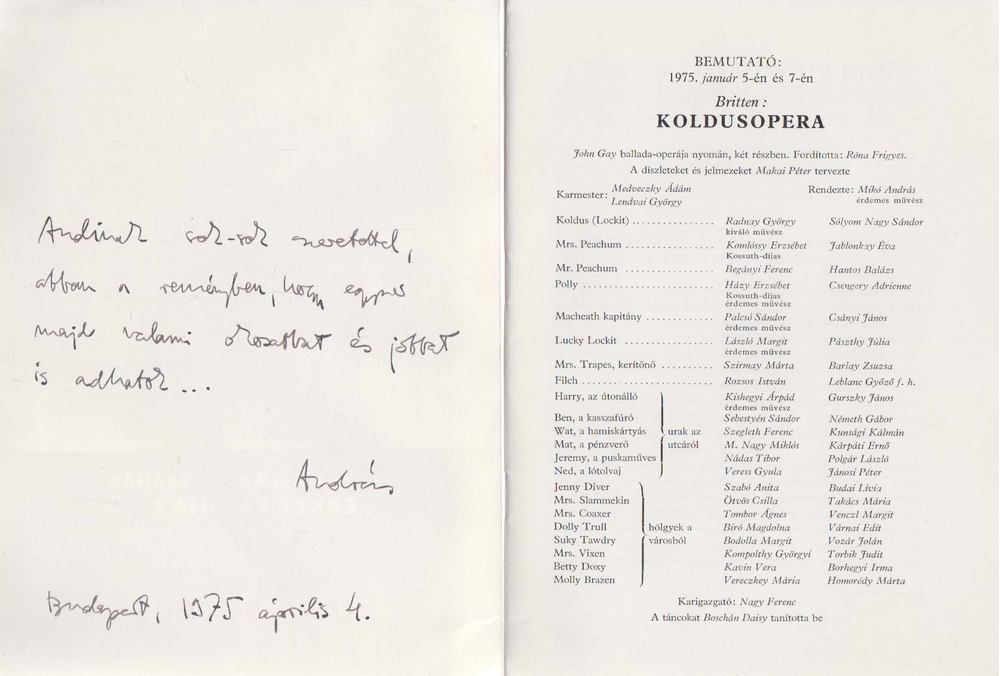 Andinak sok-sok szeretettel,
abban a reményben, hogy egyszer
majd valami okosabbat és jobbat
is adhatok ...
András
Budapest, 1975 április 4.
BEMUTATÓ:
1975. január 5-én és 7-én
Britten:
KOLDUSOPERA
John Gay ballada-operája nyomán, két részben. Fordította: Róna Frigyes.
A díszleteket és jelmezeket Makai Péter tervezte
Karmester: Medveczky Ádám
Lendvai György
Rendezte: Mikó András
érdemes művész
Koldus (Lockit) ............... Radnay György Sólyom Nagy Sándor
kiváló művész
Mrs. Peachum ................ Komlóssy Erzsébet Jablonkay Éva
Kossuth-díjas
Mr. Peachum ................ Begányi Ferenc Hantos Balázs
Polly ........................ Házy Erzsébet Csengery Adrienne
Kossuth-díjas
érdemes művész
Macheath kapitány ............ Palcsó Sándor Csányi János
érdemes művész
Lucky Lockit ................ László Margit Pászthy Júlia
érdemes művész
Mrs. Trapes, kerítőnő .......... Szirmay Márta Barlay Zsuzsa
Filch ........................ Rozsos István Leblanc Győző f. h.
Harry, az útonálló Kishegyi Árpád Gurszky János
érdemes művész
Ben, a kasszafúró Sebestyén Sándor Németh Gábor
Wat, a hamiskártyás urak az Szegleth Ferenc Kunsági Kálmán
Mat, a pénzverő utcáról M. Nagy Miklós Kárpáti Ernő
Jeremy, a puskaműves Nádas Tibor Polgár László
Ned, a lótolvaj Veress Gyula Jánosi Péter
Jenny Diver Szabó Anita Budai Lívia
Mrs. Slammekin Ötvös Csilla Takács Mária
Mrs. Coaxer Tombor Ágnes Venczl Margit
Dolly Trull hölgyek a Biró Magdolna Várnai Edit
Suky Tawdry városból Bodolla Margit Vozár Jolán
Mrs. Vixen Kompolthy Györgyi Torbik Judit
Betty Doxy Kavin Vera Borhegyi Irma
Molly Brazen Vereczkey Mária Homoródy Márta
Karigazgató: Nagy Ferenc
A táncokat Boschán Daisy tanította be